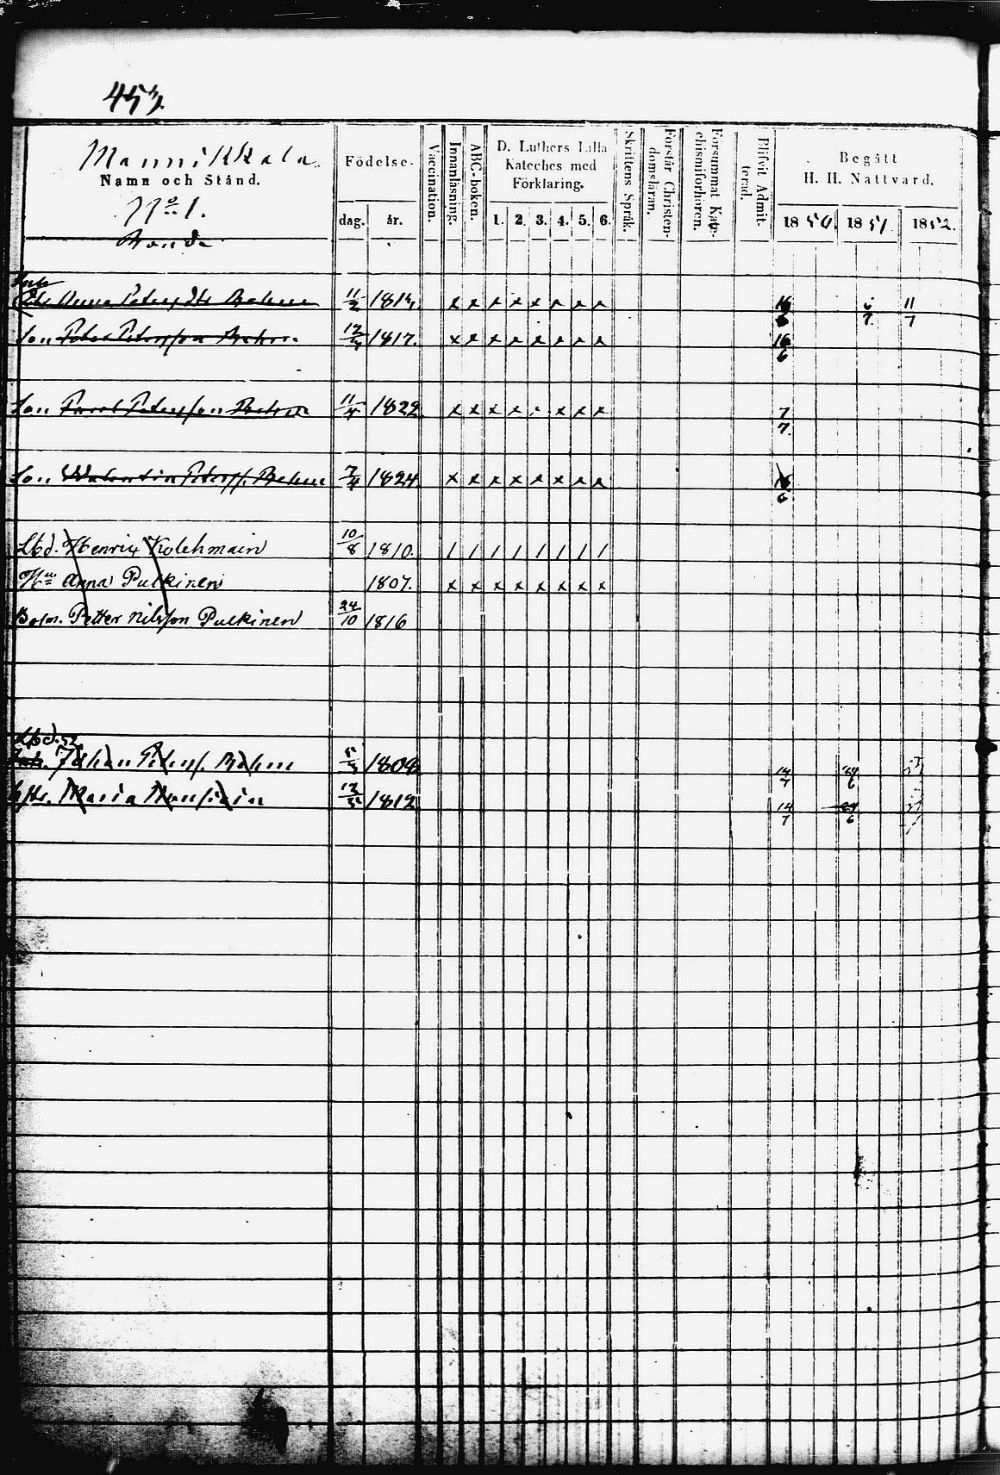 453.
Mannikkala.
Namn och Stånd.
No 1.
Bonde
Födelse-
dag. år.
Vaccination.
Innanläsning.
ABC-boken.
D. Luthers Lilla
Kateches med
Förklaring.
1. 2. 3. 4. 5. 6.
Skriftens Språk.
Förstår Christen-
domsläran.
Försummat Kate-
chismiförhören.
Blifvit Admit-
terad.
Begått
H. H. Nattvard.
1850. 1851. 1852.
Anna Peters Dr Bahm 11/2 181 x x x x x x x x 16/6 6/7 11/7
Son Peter Petersson 12/4 1817. x x x x x x x x 16/6
Son Petersson 11/4 1822 x x x x x x x 7/7
Son Valentin Peterss. Behm 7/4 1824 x x x x x x x x 16/6
Lbd. Henrix Kolehmain 10/8 1810. / / / / / / / /
Hu Anna Pulkinen 1807. x x x x x x x x
Bolm. Petter Nilsson Pulkinen 24/10 1816
Lbd. 52
Johan Peterss. Bahm 5/3 1808 14/7 24/6
Hstr. Maria 12/5 1812 14/7 24/6